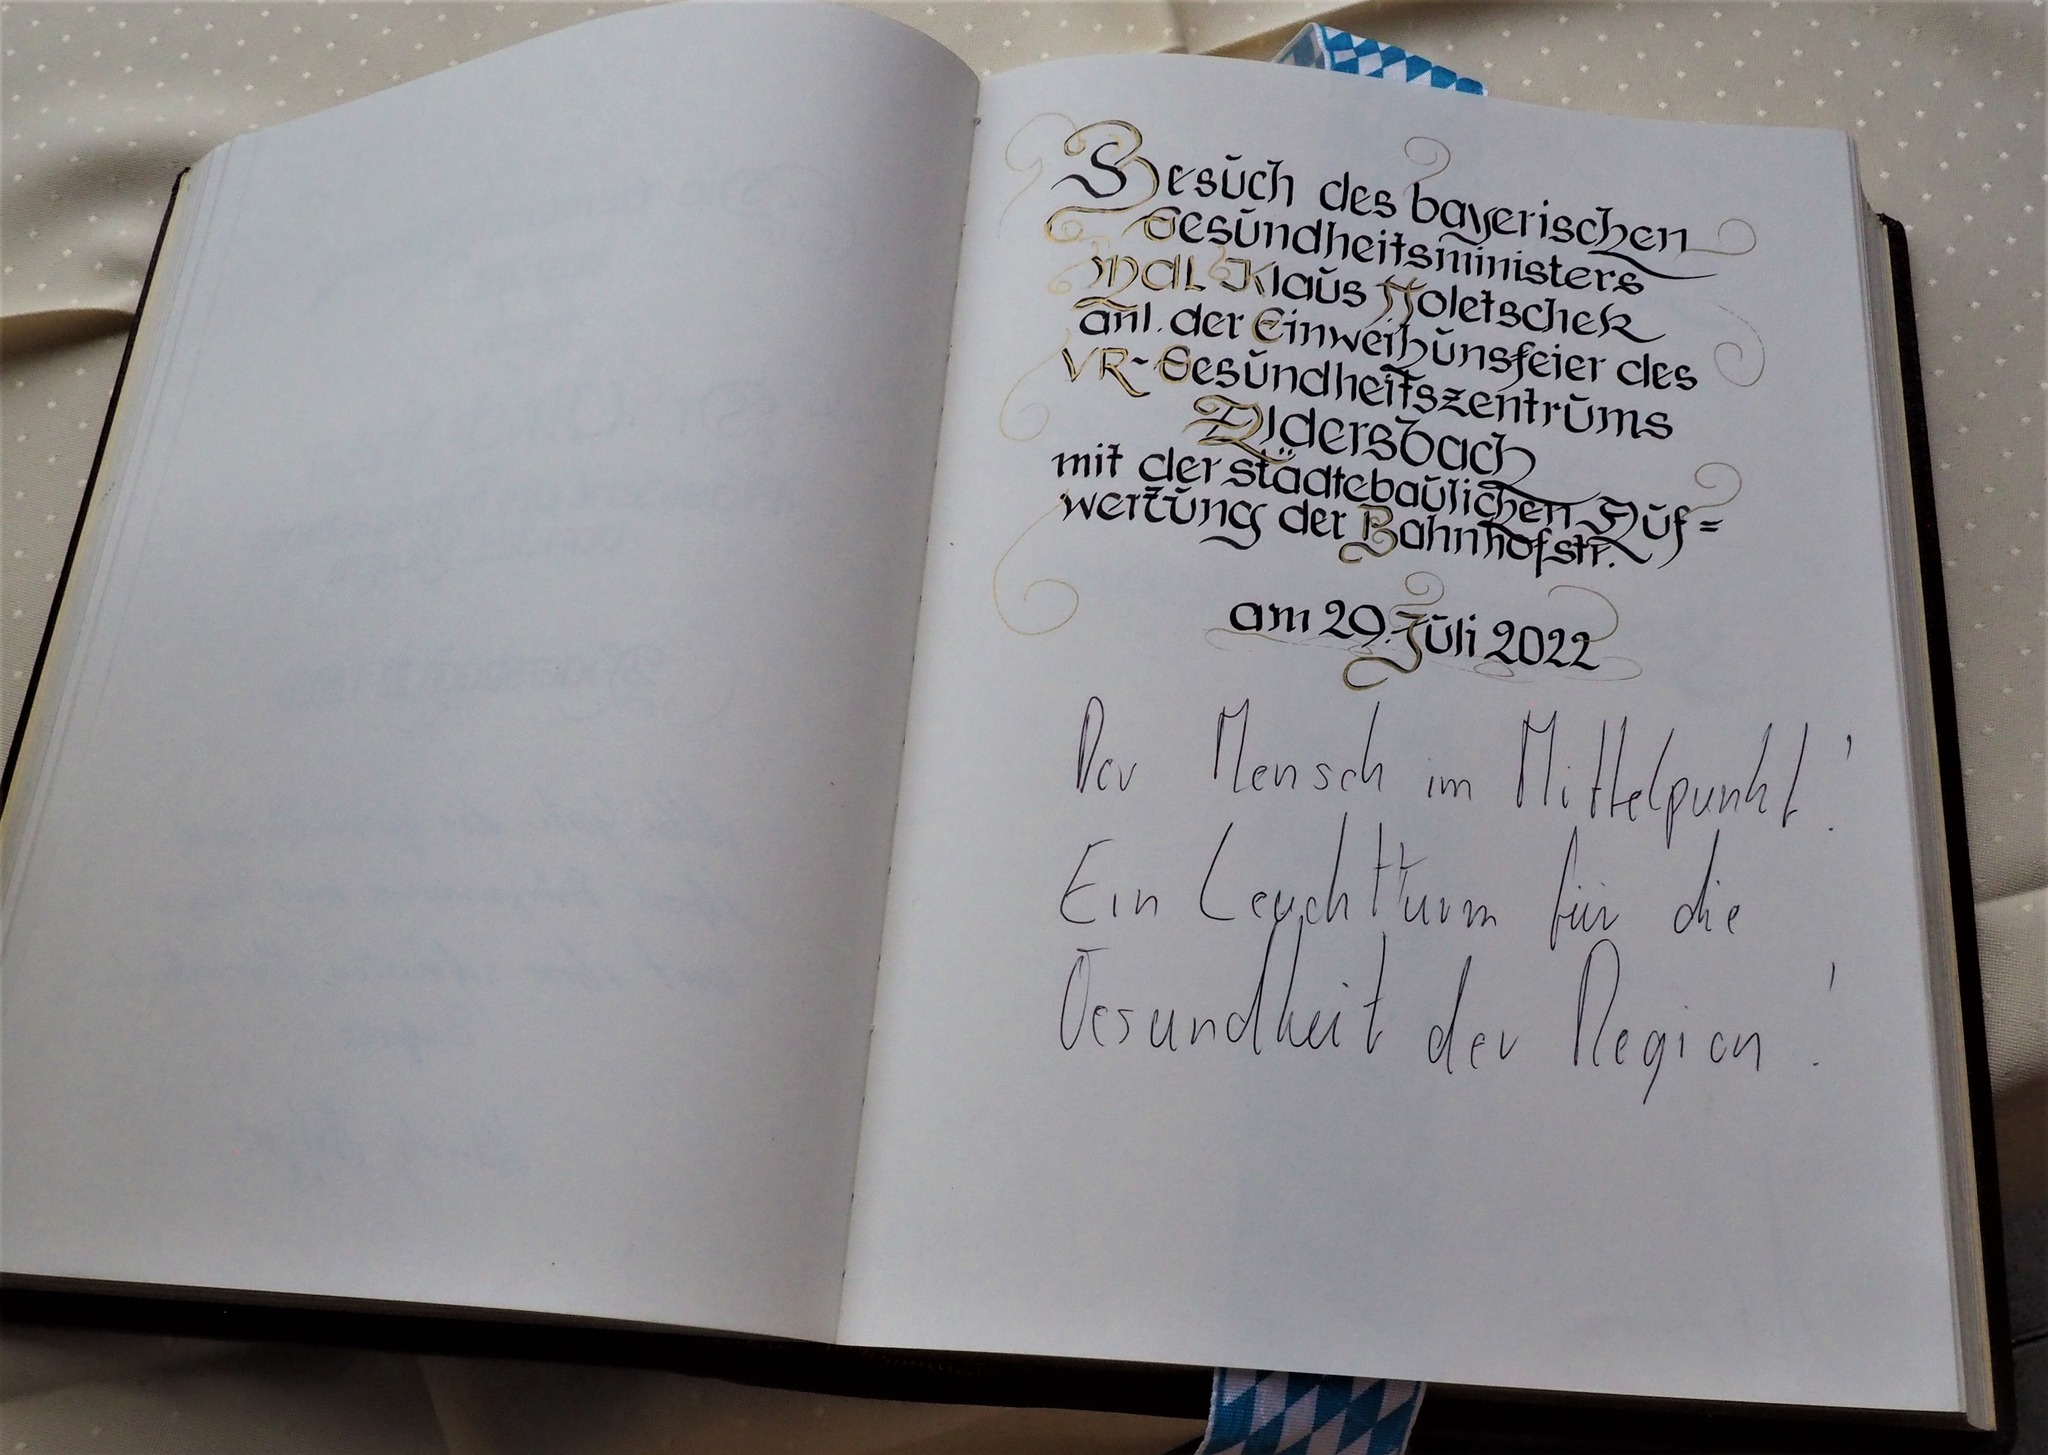 Besuch des bayerischen
Gesundheitsministers
MdL Klaus Holetschek
anl. der Einweihunsfeier des
VR-Gesundheitszentrums
Aidersbach
mit der städtebaulichen Auf=
wertung der Bahnhofstr.
am 29. Juli 2022
Der Mensch im Mittelpunkt!
Ein Leuchtturm für die
Gesundheit der Region!